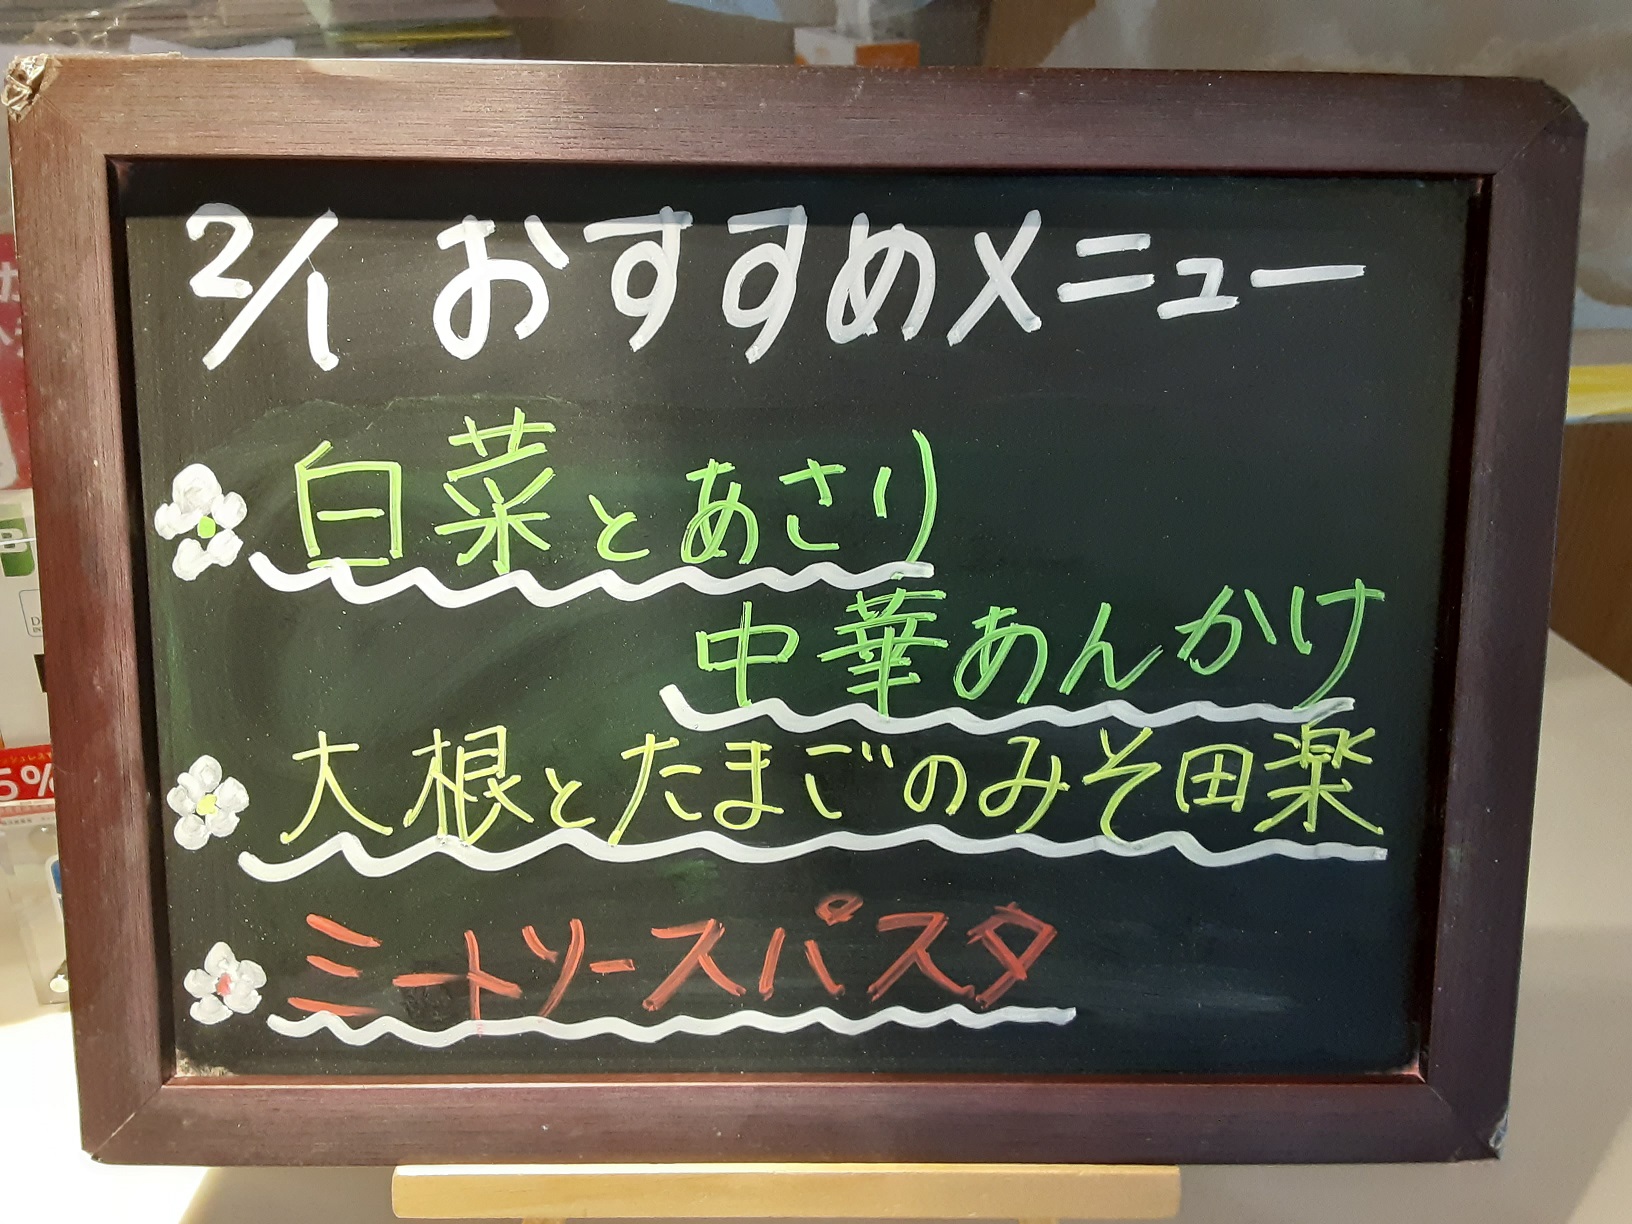 2/1 おすすめメニュー
白菜とあさり
中華あんかけ
大根とたまごのみそ田楽
ミートソースパスタ
5%